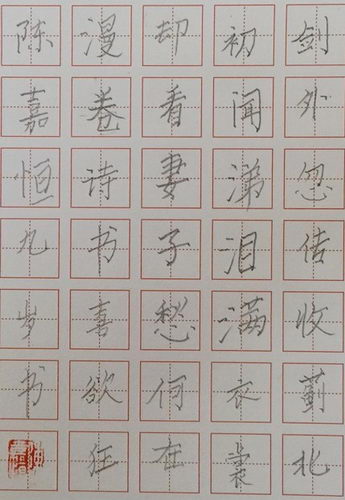 剑外忽传收蓟北
初闻涕泪满衣裳
却看妻子愁何在
漫卷诗书喜欲狂
陈嘉恒九岁书